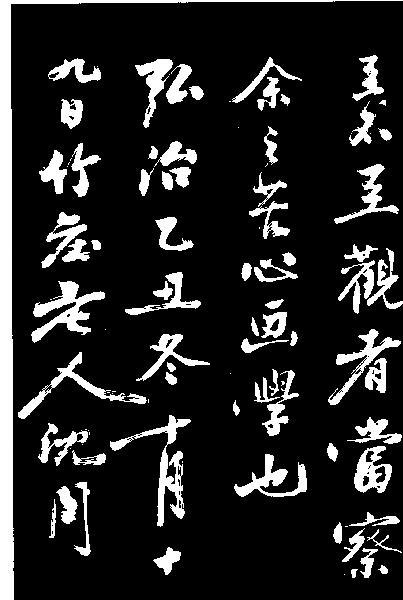 至觀者當察
余之苦心画學也
弘治乙丑冬十月十
九日竹庄老人沈周